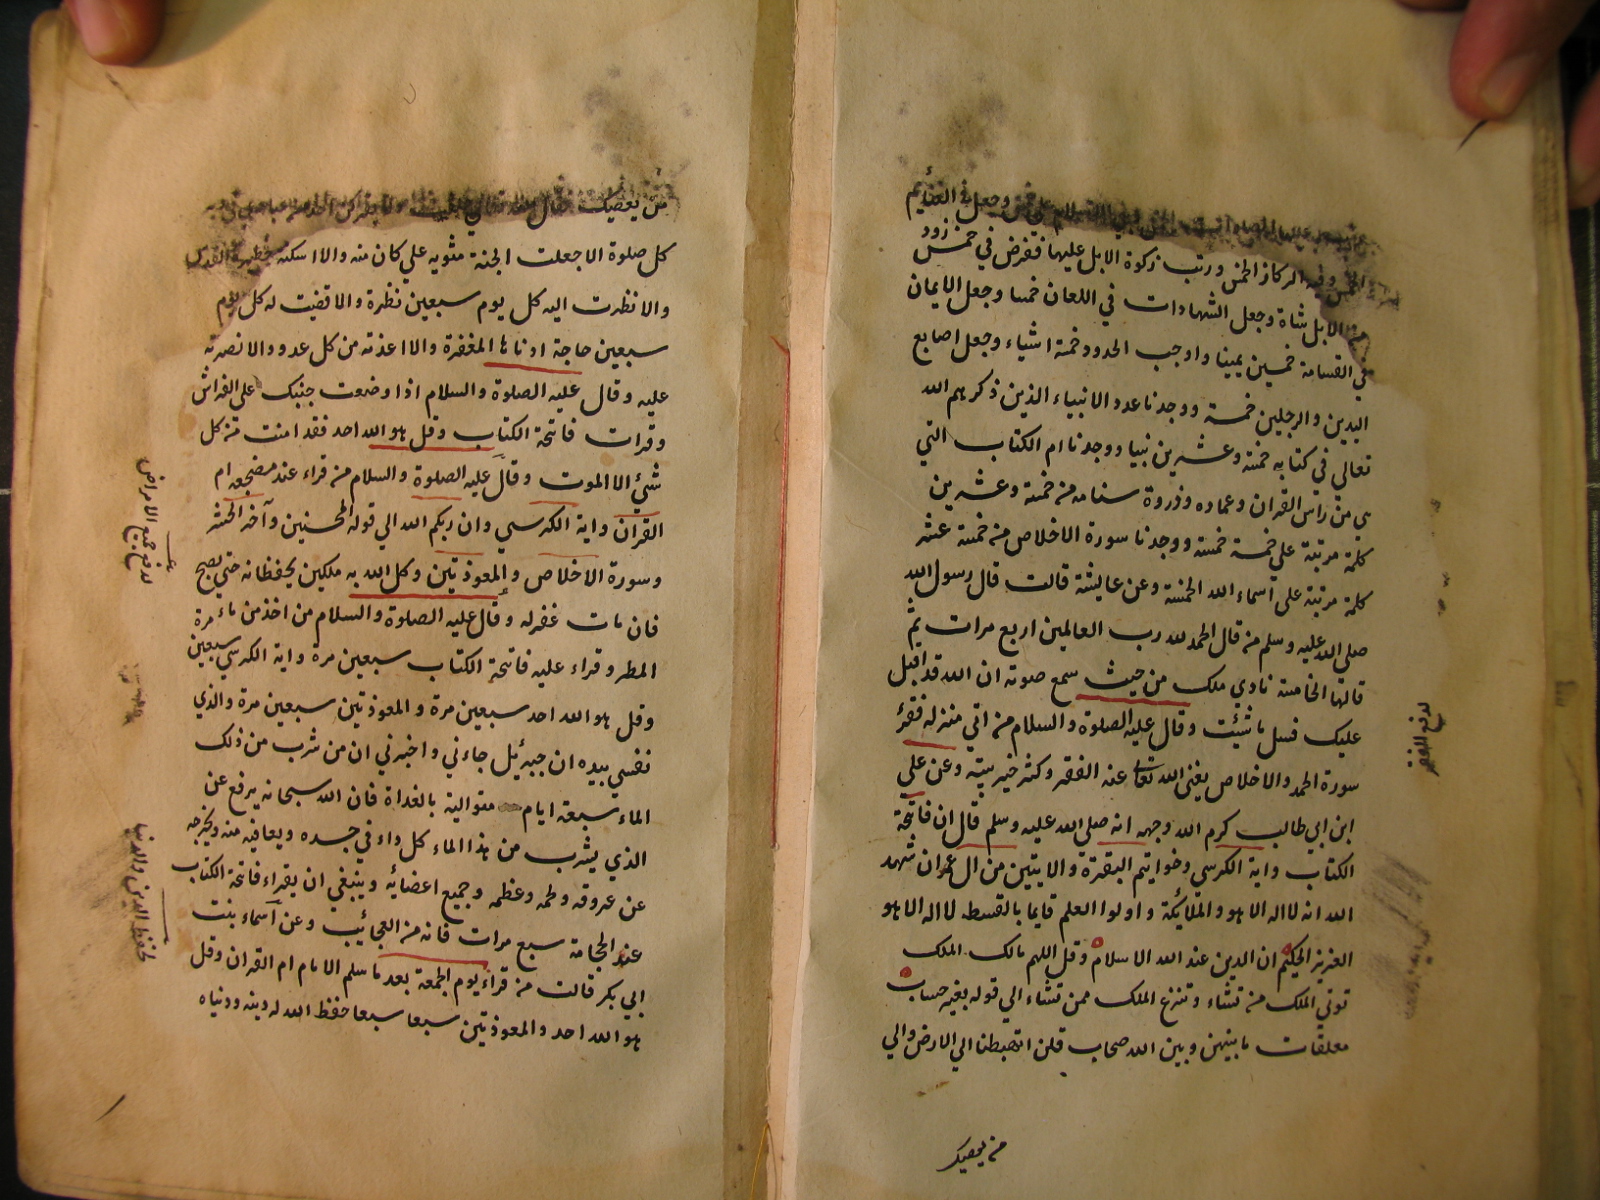 وجعل في الغنائم
الخمس وفي الركاز الخمس ورتب زكوة الابل عليها ففرض في خمس زود
من الابل شاة وجعل الشهادات في اللعان خمسا وجعل الايمان
في القسامة خمسين يمينا واوجب الحدود خمسة اشياء وجعل اصابع
اليدين والرجلين خمسة ووجدنا عدد الانبياء الذين ذكرهم الله
تعالي في كتابه خمسة وعشرين نبيا ووجدنا ام الكتاب التي
هي من راس القران وعماده وذروة سنامه من خمسة وعشرين
كلمة مرتبة علي خمسة خمسة ووجدنا سورة الاخلاص من خمسة عشر
كلمة مرتبة علي اسماء الله الخمسة وعن عايشة قالت قال رسول الله
صلي الله عليه وسلم من قال الحمد لله رب العالمين اربع مرات ثم
قالها الخامسة نادي ملك من حيث سمع صوته ان الله قد اقبل
عليك فسل ما شئت وقال عليه الصلوة والسلام من اتي منزله فقرء
سورة الحمد والاخلاص يغنى الله تعالى عنه الفقر وكثر خير بيته وعن علي
ابن ابي طالب كرم الله وجهه انه صلي الله عليه وسلم قال ان فاتحة
الكتاب واية الكرسي وخواتيم البقرة والايتين من ال عمران شهد
الله انه لا اله الا هو والملائكة واولوا العلم قايما بالقسط لا اله الا هو
العزيز الحكيم ان الدين عند الله الاسلام وقل اللهم مالك الملك
توتي الملك من تشاء وتنزع الملك ممن تشاء الي قوله بغير حساب
معلقات ما بينهن وبين الله حجاب قلن اتهبطنا الي الارض والي
من يعصيك
لدفع الفقر
من يعصيك
كل صلوة الا جعلت الجنة مثويه علي كان منه والا اسكنه حظيرة القدس
والا نظرت اليه كل يوم سبعين نظرة والا قضيت له كل يوم
سبعين حاجة ادناها المغفرة والا اعذته من كل عدو والا نصرته
عليه وقال عليه الصلوة والسلام اذا وضعت جنبك على الفراش
وقرات فاتحة الكتاب وقل هو الله احد فقد امنت من كل
شئ الا الموت وقال عليه الصلوة والسلام من قراء عند مضجعه ام
القران واية الكرسي وان ربكم الله الي قوله المحسنين وآخر الحشر
وسورة الاخلاص والمعوذتين وكل الله به ملكين يحفظانه حتي يصبح
فان مات غفر له وقال عليه الصلوة والسلام من اخذ من ماء
المطر وقراء عليه فاتحة الكتاب سبعين مرة واية الكرسي سبعين مرة
وقل هو الله احد سبعين مرة والمعوذتين سبعين مرة والذي
نفسي بيده ان جبرئيل جاءني واخبرني ان من شرب من ذلك
الماء سبعة ايام متوالية بالغداة فان الله سبحانه يرفع عن
الذي يشرب من هذا الماء كل داء في جسده ويعافيه منه ويخرجه
عن عروقه ولحمه وعظمه وجميع اعضائه وينبغي ان يقراء فاتحة الكتاب
عند الحجامة سبع مرات فانه من العجائب وعن اسماء بنت
ابي بكر قالت من قراء يوم الجمعة بعد ما سلم الامام ام القران وقل
هو الله احد والمعوذتين سبعا سبعا حفظ الله له دينه ودنياه
لدفع جميع الامراض
لحفظ الدين والدنيا